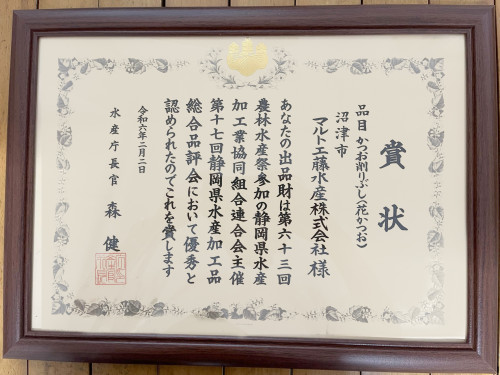 賞状
品目 かつお削りぶし(花かつお)
沼津市
マルト工藤水産株式会社 様
あなたの出品財は第六十三回
農林水産祭参加の静岡県水産
加工業協同組合連合会主催
第十七回静岡県水産加工品
総合品評会において優秀と
認められたのでこれを賞します
令和六年二月二日
水産庁長官 森 健